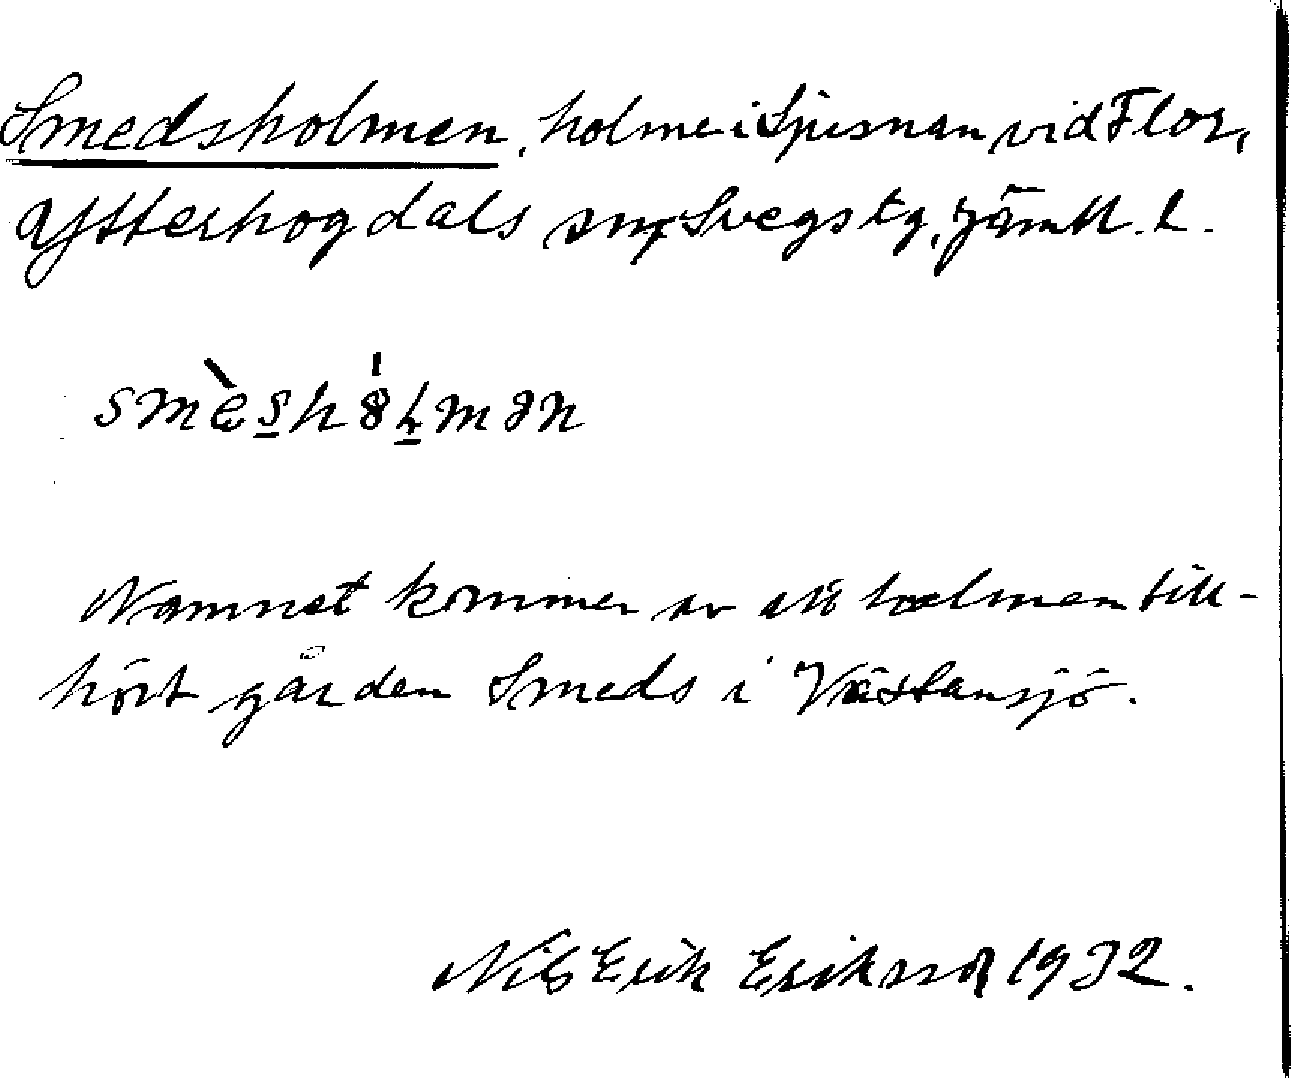 Smedsholmen, holme i Ljusnan vid Flor,
Ytterhogdals sn, Svegs tg, Jämtl. l.
Namnet kommer av att holmen till-
hört gården Smeds i Västansjö.
Nils Erik Eriksson 1932.